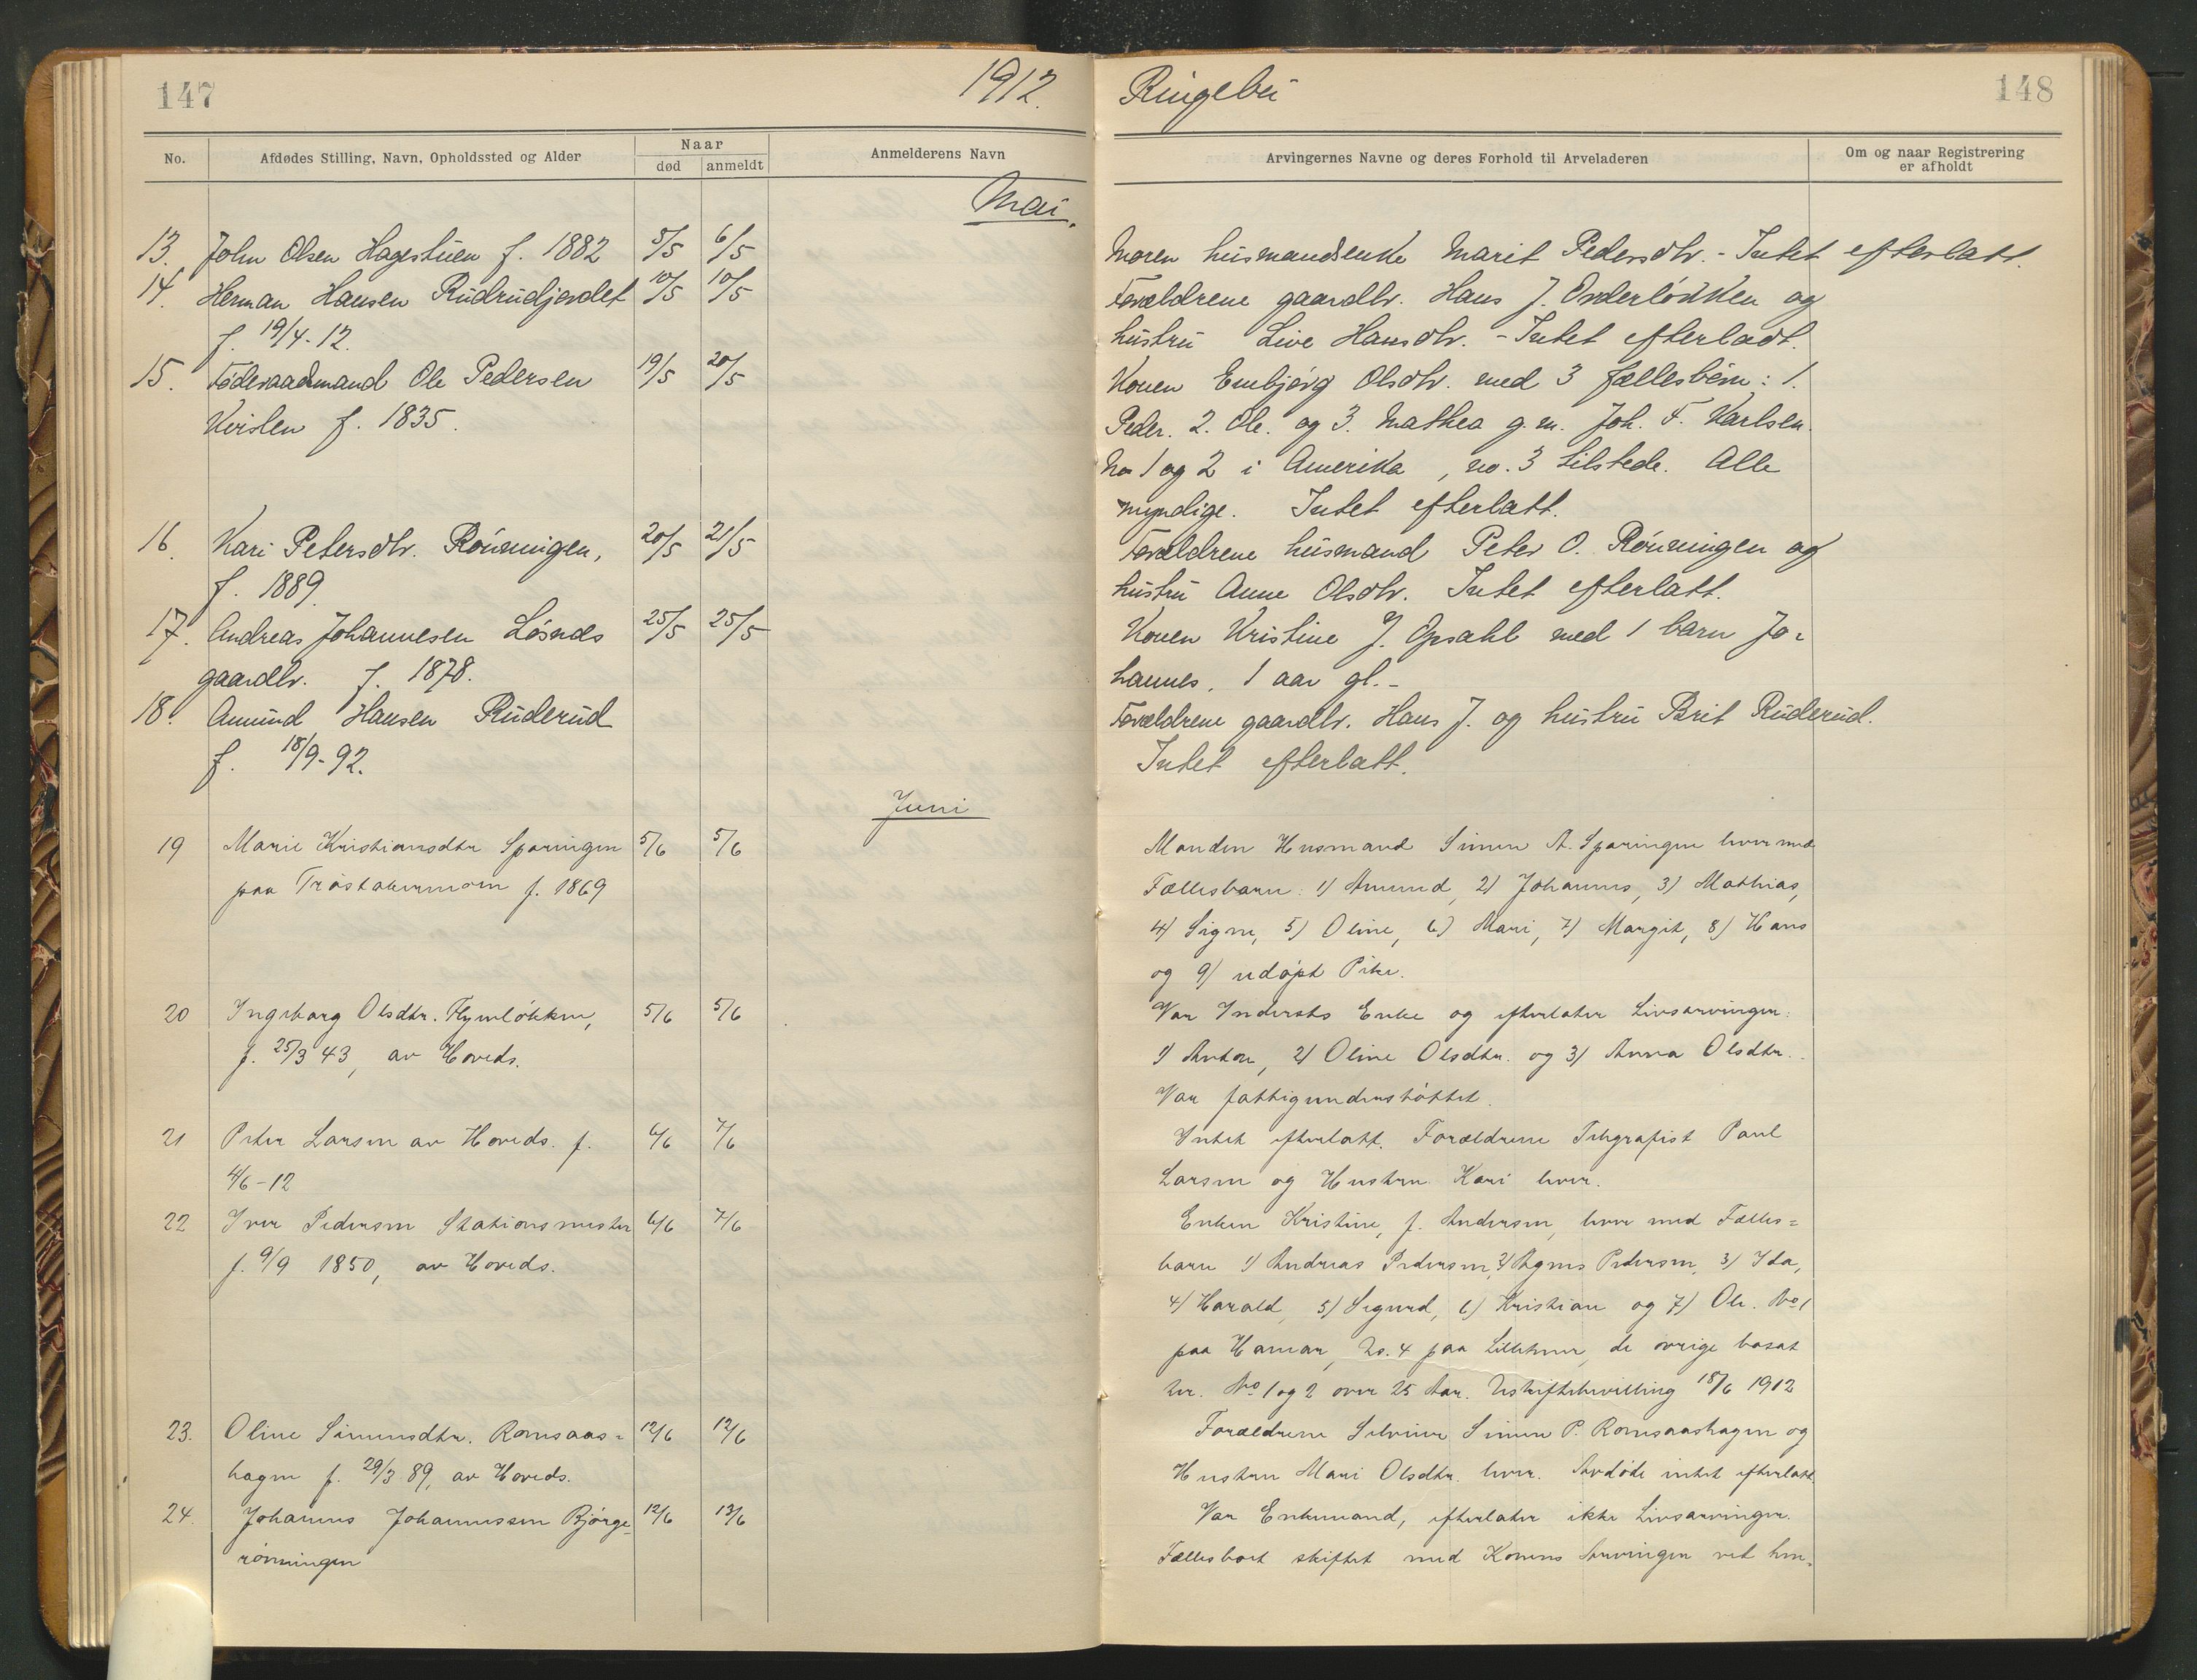 147
1912.
No.
Afdødes Stilling, Navn, Opholdssted og Alder
Naar
død
anmeldt
Anmelderens Navn
Mai.
13. John Olsen Hagestuen f. 1882 5/5 6/5
14. Herman Hansen Rudrudjordet 10/5 10/5
f. 19/4-12.
15. Föderaadsmand Ole Pedersen 19/5 20/5
f. 1835.
16. Kari Petersdtr. Rönningen, 20/5 21/5
f. 1889.
17. Andreas Johannesen Lösnæs 25/5 25/5
gaardbr. f. 1878.
18. Amund Hansen Ruderud
f. 18/9-92.
Juni
19 Marie Kristiansdtr Sparingen 5/6 5/6
paa f. 1869
20 Ingeborg Olsdtr. Flymløkken, 5/6 5/6
f. 25/3 43, av Hoveds.
21 Peter Larsen av Hoveds. f. 6/6 7/6
4/6-12
22 Iver Pedersen Stationsmester 6/6 7/6
f. 9/9 1850, av Hoveds.
23. Oline Simensdtr. Romsaas= 12/6 12/6
hagen f. 29/3 89, av Hoveds.
24. Johannes Johannessen Bjørge= 12/6 13/6
rønningen
Ringebu
148
Arvingernes Navne og deres Forhold til Arveladeren
Om og naar Registrering
er afholdt
Moren husmandsenke Marit Pedersdtr. - Intet efterlatt.
Forældrene gaardbr. Hans J. Onderlökken og
hustru Live Hansdtr. - Intet efterladt.
Konen Embjörg Olsdtr. med 3 fællesbörn: 1.
Peder. 2. Ole. og 3. Mathea g. m. Joh. F. Karlsen.
No 1 og 2 i Amerika, no. 3 tilstede. Alle
myndige. Intet efterlatt.
Forældrene husmand Peter O. Rönningen og
hustru Anne Olsdtr. Intet efterlatt.
Konen Kristine J. Opsahl med 1 barn Jo-
hannes, 1 aar gl. -
Forældrene gaardbr. Hans J. og hustru Brit Ruderud.
Intet efterlatt.
Manden Husmand Simen A. Sparingen lever med
Fællesbarn: 1) Amund, 2) Johannes, 3) Mathias,
4) Signe, 5) Oline, 6) Mari, 7) Margit, 8) Hans
og 9) udøpt Pike.
Var Inderests Enke og efterlater Livsarvinger:
1) Anton, 2) Oline Olsdtr. og 3) Anna Olsdtr.
Var fattigunderstøttet.
Intet efterlatt. Forældrene Telegrafist Paul
Larsen og Hustru Kari lever.
Enken Kristine, f. Andersen, lever med Fælles=
barn 1) Andreas Pedersen, 2) Agnes Pedersen, 3) Ida,
4) Harald, 5) Sigurd, 6) Kristian og 7) Ole. No 1
paa Hamar, No. 4 paa Lillehmr, de øvrige bosat
her. No 1 og 2 over 25 Aar. Uskiftebevilling 18/6 1912
Forældrene Selveier Simen P. Romsaashagen og
Hustru Mari Olsdtr. lever. Avdøde intet efterlatt.
Var Enkemand, efterlater ikke Livsarvinger.
Fællesboet skiftet med Konens Arvinger ved hen=